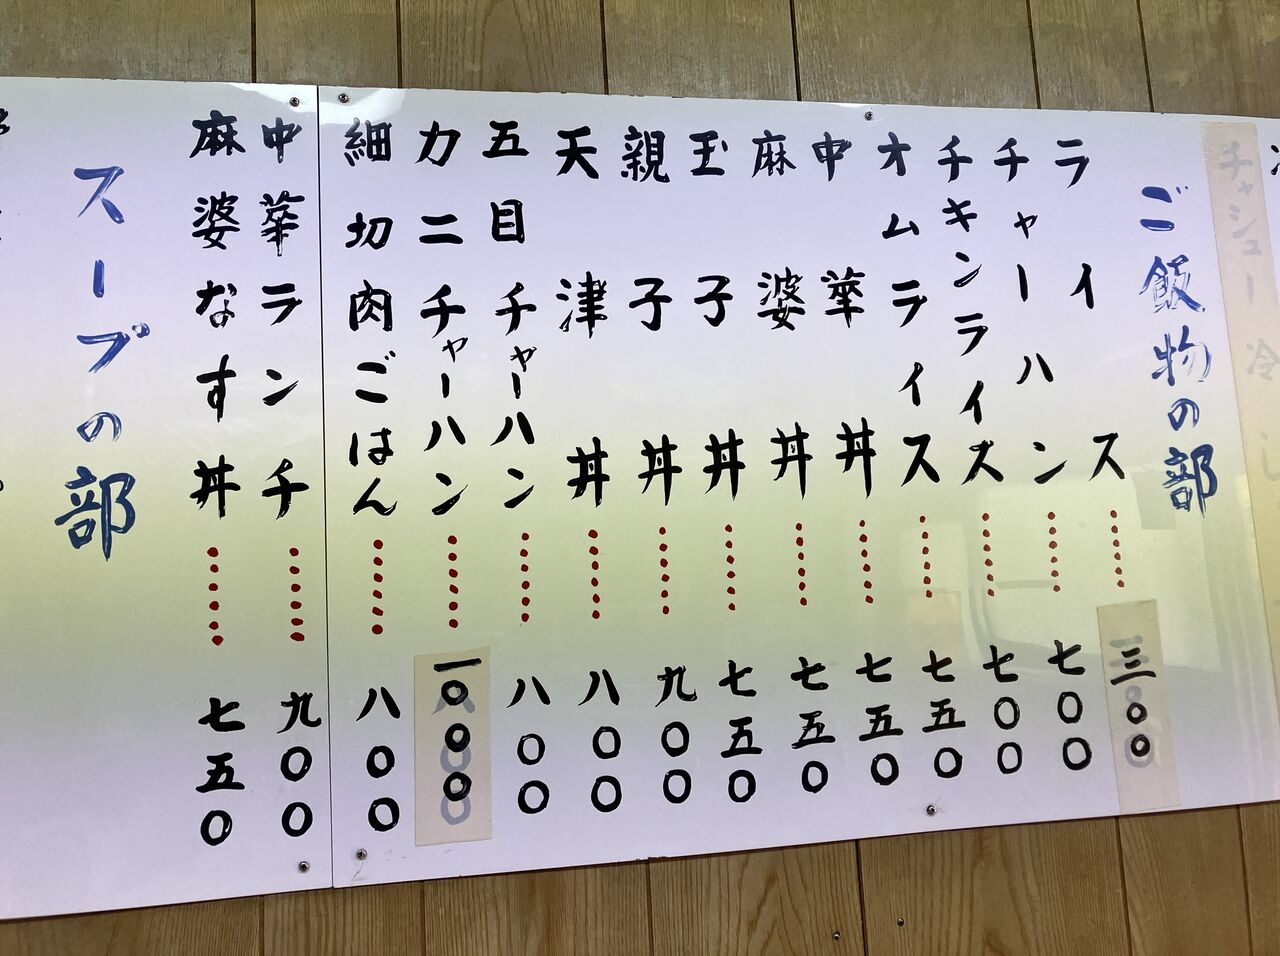 チャシュー冷し
ご飯物の部
ライス……三〇〇
チャーハン……七〇〇
チキンライス……七〇〇
オムライス……七五〇
中華丼……七五〇
麻婆丼……七五〇
玉子丼……七五〇
親子丼……九〇〇
天津丼……八〇〇
五目チャーハン……八〇〇
カニチャーハン……一〇〇〇
細切肉ごはん……八〇〇
中華ランチ……九〇〇
麻婆なす丼……七五〇
スープの部